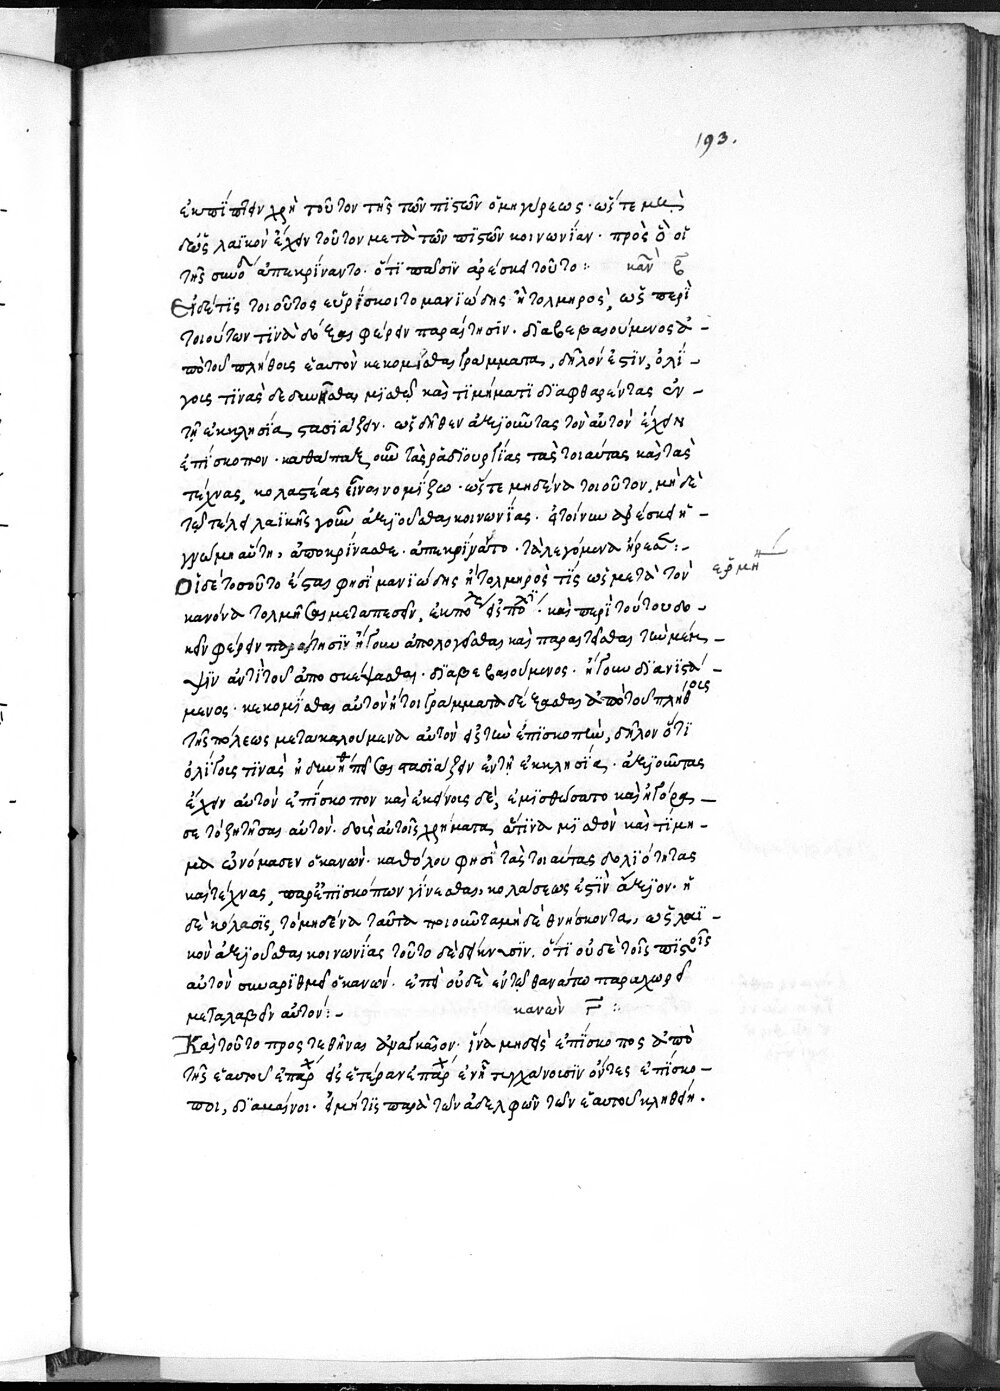 193.
ἐκπίπτειν χρὴ τοῦτον τῆς τῶν πιστῶν ὁμηγύρεως· ὥστε μη
δὲ ὡς λαϊκὸν ἔχειν τοῦτον μετὰ τῶν πιστῶν κοινωνίαν· πρὸς ὃ οἱ
τῆς συνόδου ἀπεκρίναντο· ὅτι πᾶσιν ἀρέσκει τοῦτο: κανὼν β
Εἰ δέ τις τοιοῦτος εὑρίσκοιτο μανιώδης ἢ τολμηρός, ὡς περὶ
τοιούτων τινὰ δόξας φέρειν παραίτησιν· διαβεβαιούμενος ἀ-
πὸ τοῦ πλήθους ἑαυτὸν κεκομίσθαι γράμματα, δῆλόν ἐστιν, ὀλί-
γοις τινὰς δεδυνῆσθαι μισθῷ καὶ τιμήματι διαφθαρέντας ἐν
τῇ ἐκκλησίᾳ στασιάζειν· ὡς δῆθεν ἀξιοῦντας τὸν αὐτὸν ἔχειν
ἐπίσκοπον· καθάπαξ οὖν τὰς ῥαδιουργίας τὰς τοιαύτας καὶ τὰς
τέχνας, κολαστέας εἶναι νομίζω· ὥστε μηδένα τοιοῦτον, μηδὲ
τῷ τέλει λαϊκῆς γοῦν ἀξιοῦσθαι κοινωνίας· εἰ τοίνυν ἀρέσκει ἡ
γνώμη αὕτη, ἀποκρίνασθε· ἀπεκρίναντο· τὰ λεγόμενα ἤρεσε:-
ἑρμη
Εἰ δὲ τοσοῦτο ἔσται φησὶ μανιώδης ἢ τολμηρός τις ὡς μετὰ τὸν
κανόνα τολμῆσαι μεταπεσεῖν, ἐκ πόλεως εἰς πόλιν· καὶ περὶ τούτου δο-
κεῖν φέρειν παραίτησιν ἤγουν ἀπολογεῖσθαι καὶ παραιτεῖσθαι τὴν μέμ-
ψιν ἀντὶ τοῦ ἀποσκέψασθαι· διαβεβαιούμενος· ἤγουν διανιστά-
μενος· κεκομίσθαι αὐτὸν ἤτοι γράμματα δέξασθαι ἀπὸ τοῦ πλήθους
τῆς πόλεως μετακαλούμενα αὐτὸν εἰς τὴν ἐπισκοπήν, δῆλον ὅτι
ὀλίγοις τινὰς ἠδυνήθησαν στασιάζειν ἐν τῇ ἐκκλησίᾳ· ἀξιοῦντας
ἔχειν αὐτὸν ἐπίσκοπον καὶ ἐκείνους δέ, ἐμισθώσατο καὶ ἠγόρα-
σε τὸ ζητῆσαι αὐτόν· δοὺς αὐτοῖς χρήματα, ἅτινα μισθὸν καὶ τίμη-
μα ὠνόμασεν ὁ κανών· καθόλου φησὶ τὰς τοιαύτας δολιότητας
καὶ τέχνας, παρ' ἐπισκόπων γίνεσθαι, κολάσεως ἐστὶν ἄξιον· ἡ
δὲ κόλασις, τὸ μηδένα ταῦτα ποιοῦντα μηδὲ θνήσκοντα, ὡς λαϊ-
κὸν ἀξιοῦσθαι κοινωνίας τοῦτο δὲ δείκνυσιν· ὅτι οὐδὲ τοῖς πιστοῖς
αὐτὸν συναριθμεῖ ὁ κανών· ἐπεὶ οὐδὲ ἐν τῷ θανάτῳ παραχωρεῖ
μεταλαβεῖν αὐτόν:- κανὼν Γ :
Καὶ τοῦτο προστεθῆναι ἀναγκαῖον· ἵνα μηδεὶς ἐπίσκοπος ἀπὸ
τῆς ἑαυτοῦ ἐπαρχ εἰς ἑτέραν ἐπαρχ ἐν ᾗ τυγχάνουσιν ὄντες ἐπίσκο-
ποι, διαβαίνοι· εἰ μή τις παρὰ τῶν ἀδελφῶν τῶν ἑαυτοῦ κληθείη.